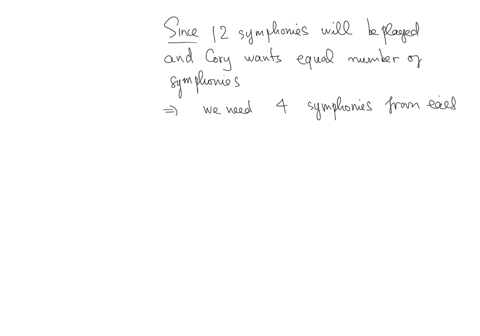 Since 12 symphonies will be played
and Cory wants equal number of
symphonies
⇒ we need 4 symphonies from